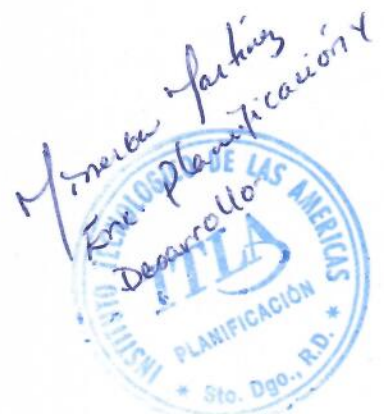 Minerva Martínez
Enc. Planificación y
Desarrollo
INSTITUTO TECNOLOGICO DE LAS AMERICAS
ITLA
PLANIFICACIÓN
* Sto. Dgo., R.D. *